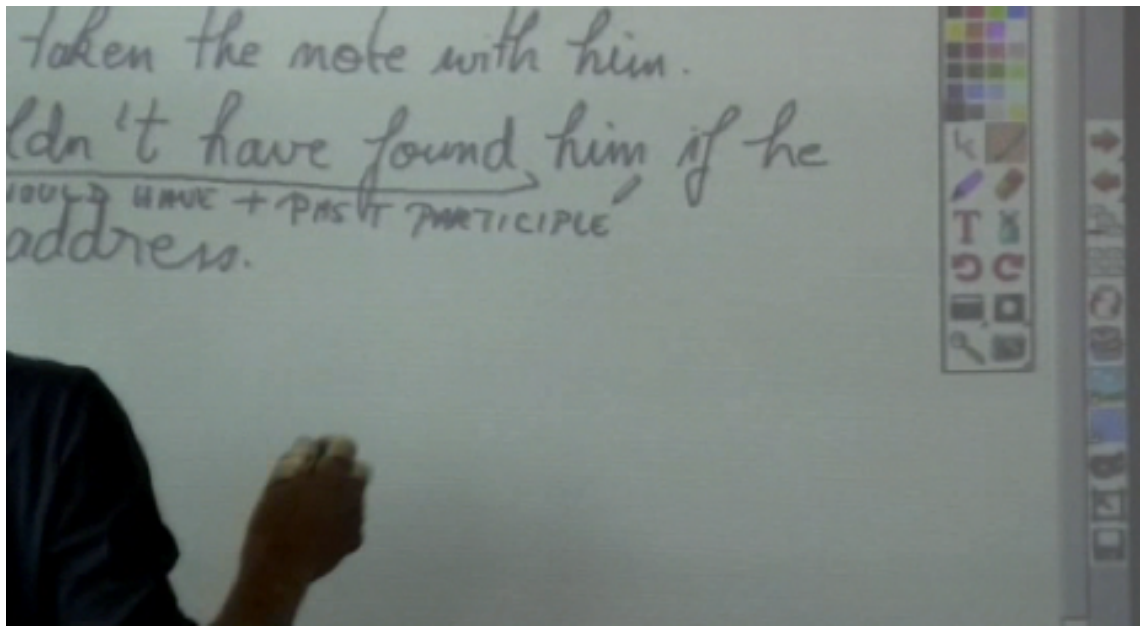 taken the note with him.
ldn't have found him, if he
WOULD HAVE + PAST PARTICIPLE
address.
T